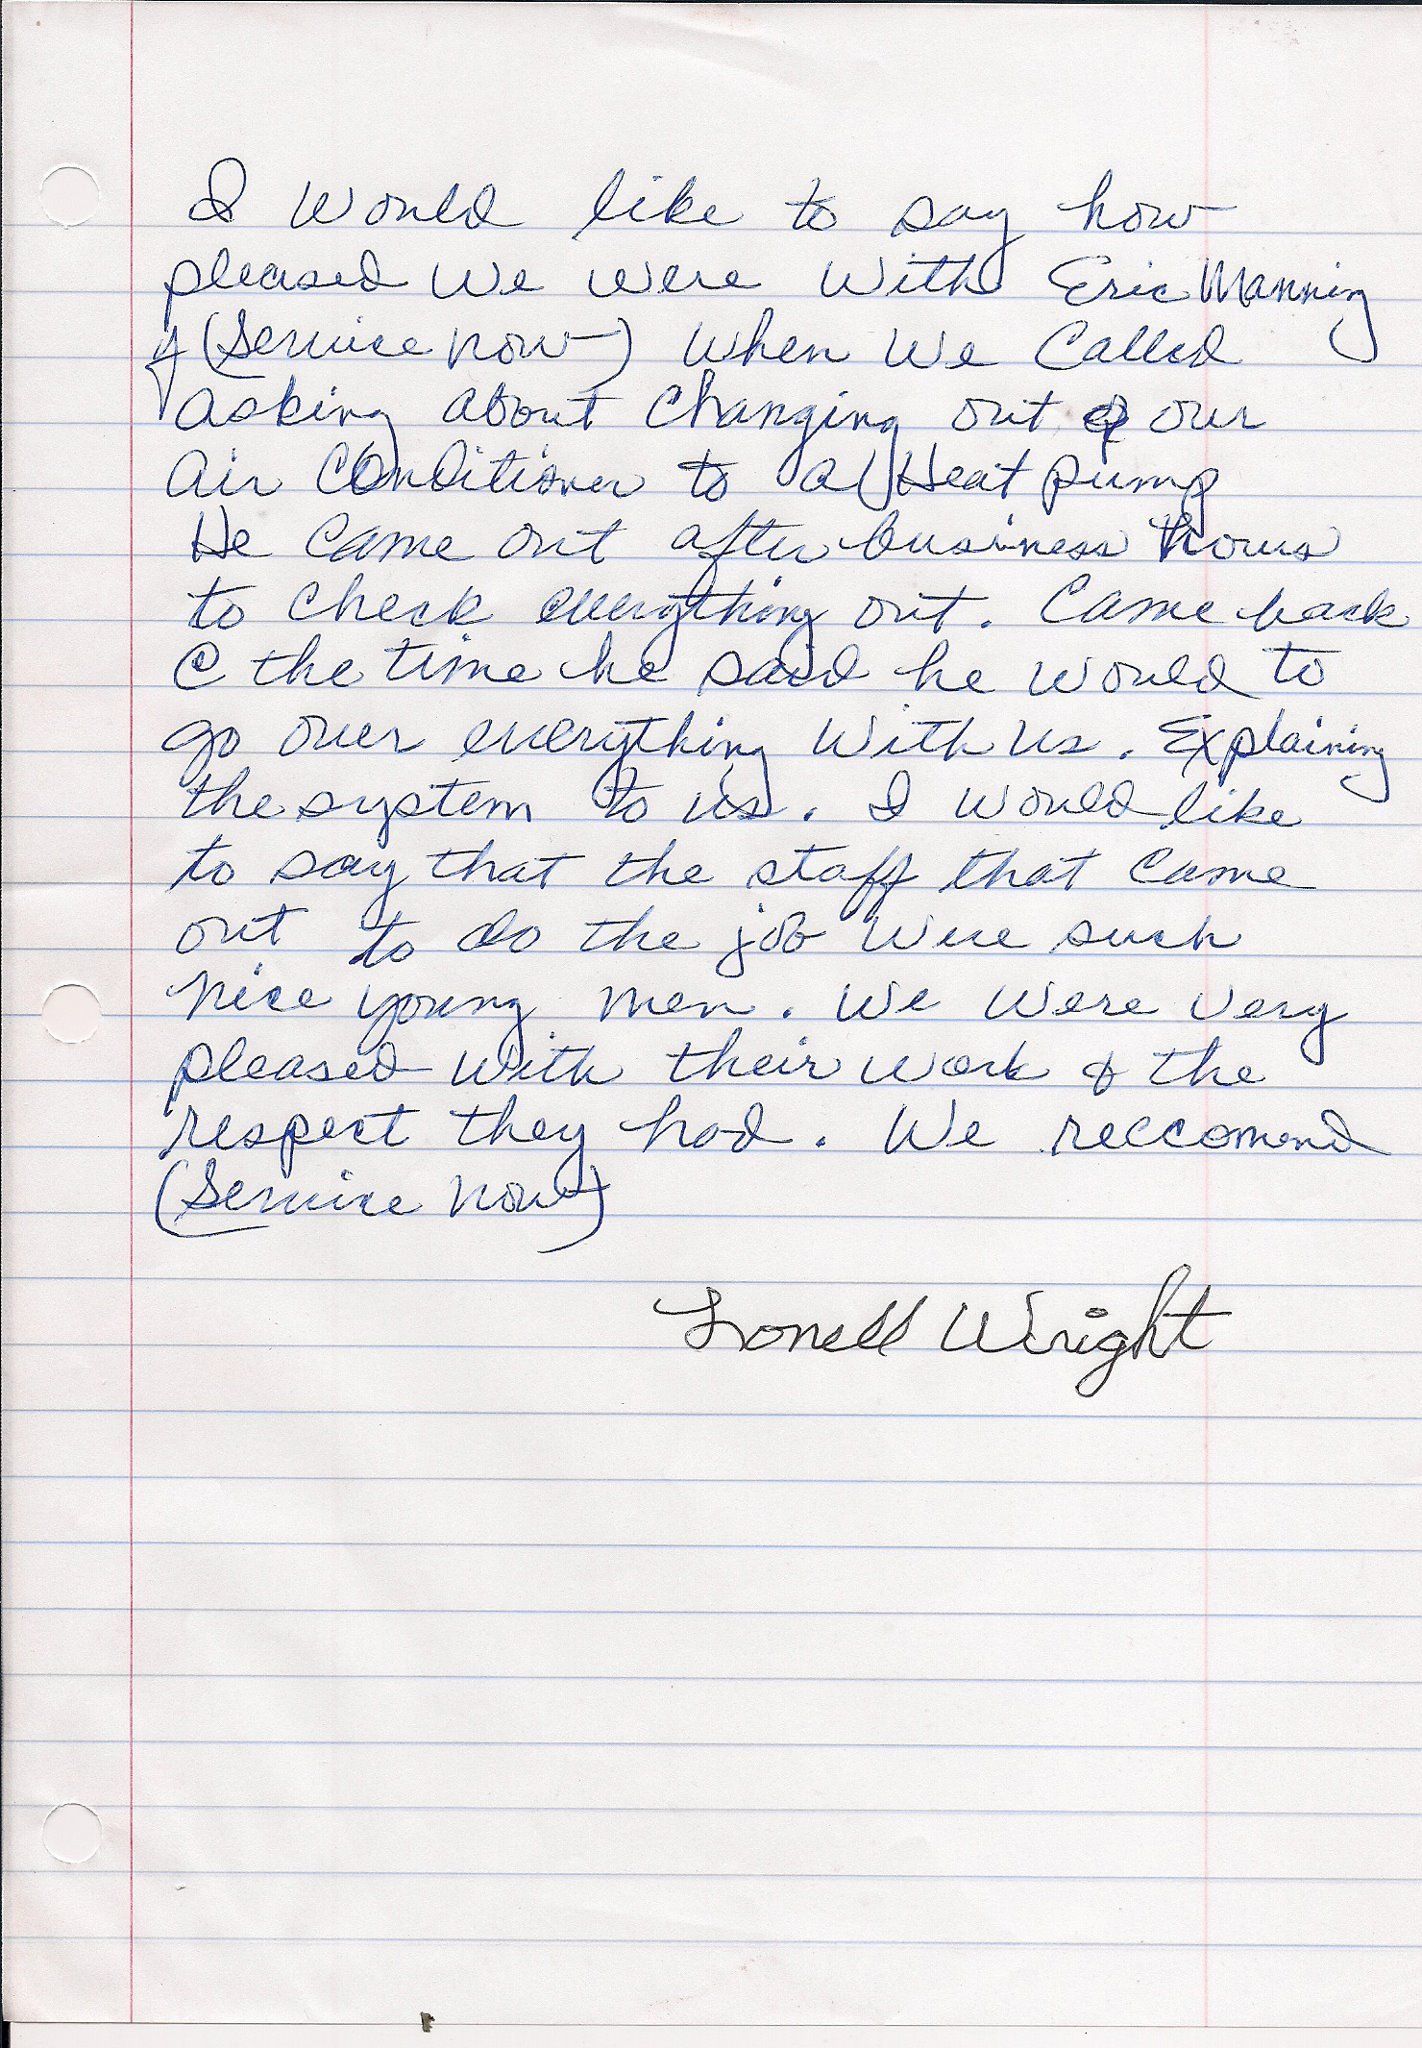 I would like to say how
pleased we were with Eric Manning
of (Service now) when we called
asking about changing out our
air conditioner to a Heat pump
He came out after business hours
to check everything out. Came back
@ the time he said he would to
go over everything with us. Explaining
the system to us. I would like
to say that the staff that came
out to do the job were such
nice young men. We were very
pleased with their work & the
respect they had. We reccomend
(Service now)
Wright